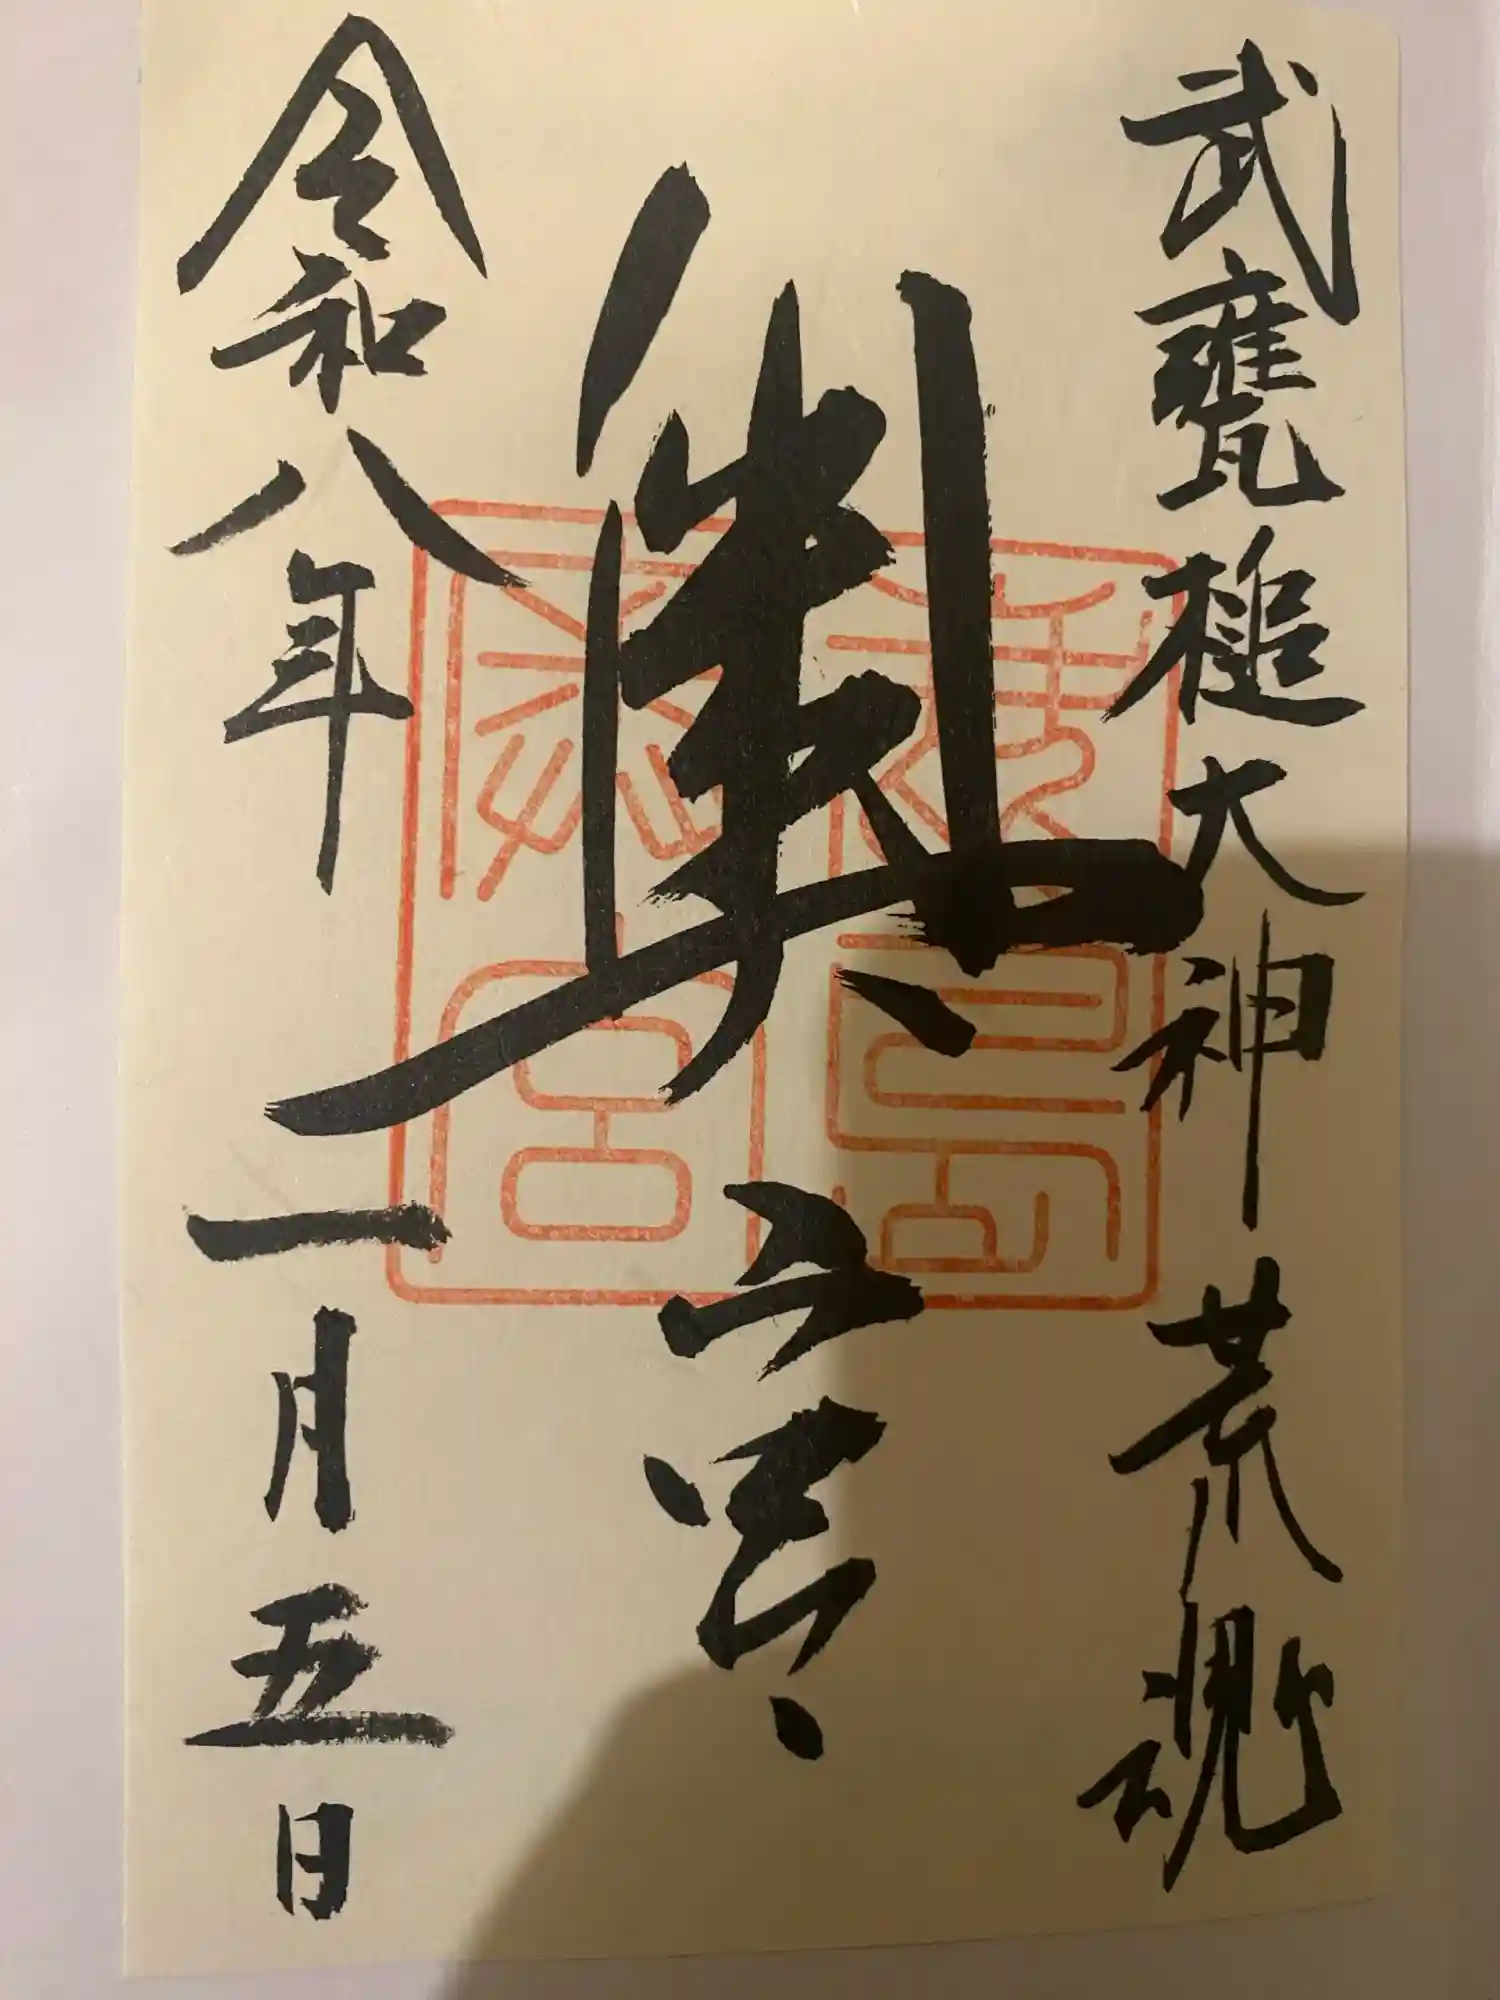 武甕槌大神 荒魂
奥宮
鹿島
奥宮
令和八年一月五日